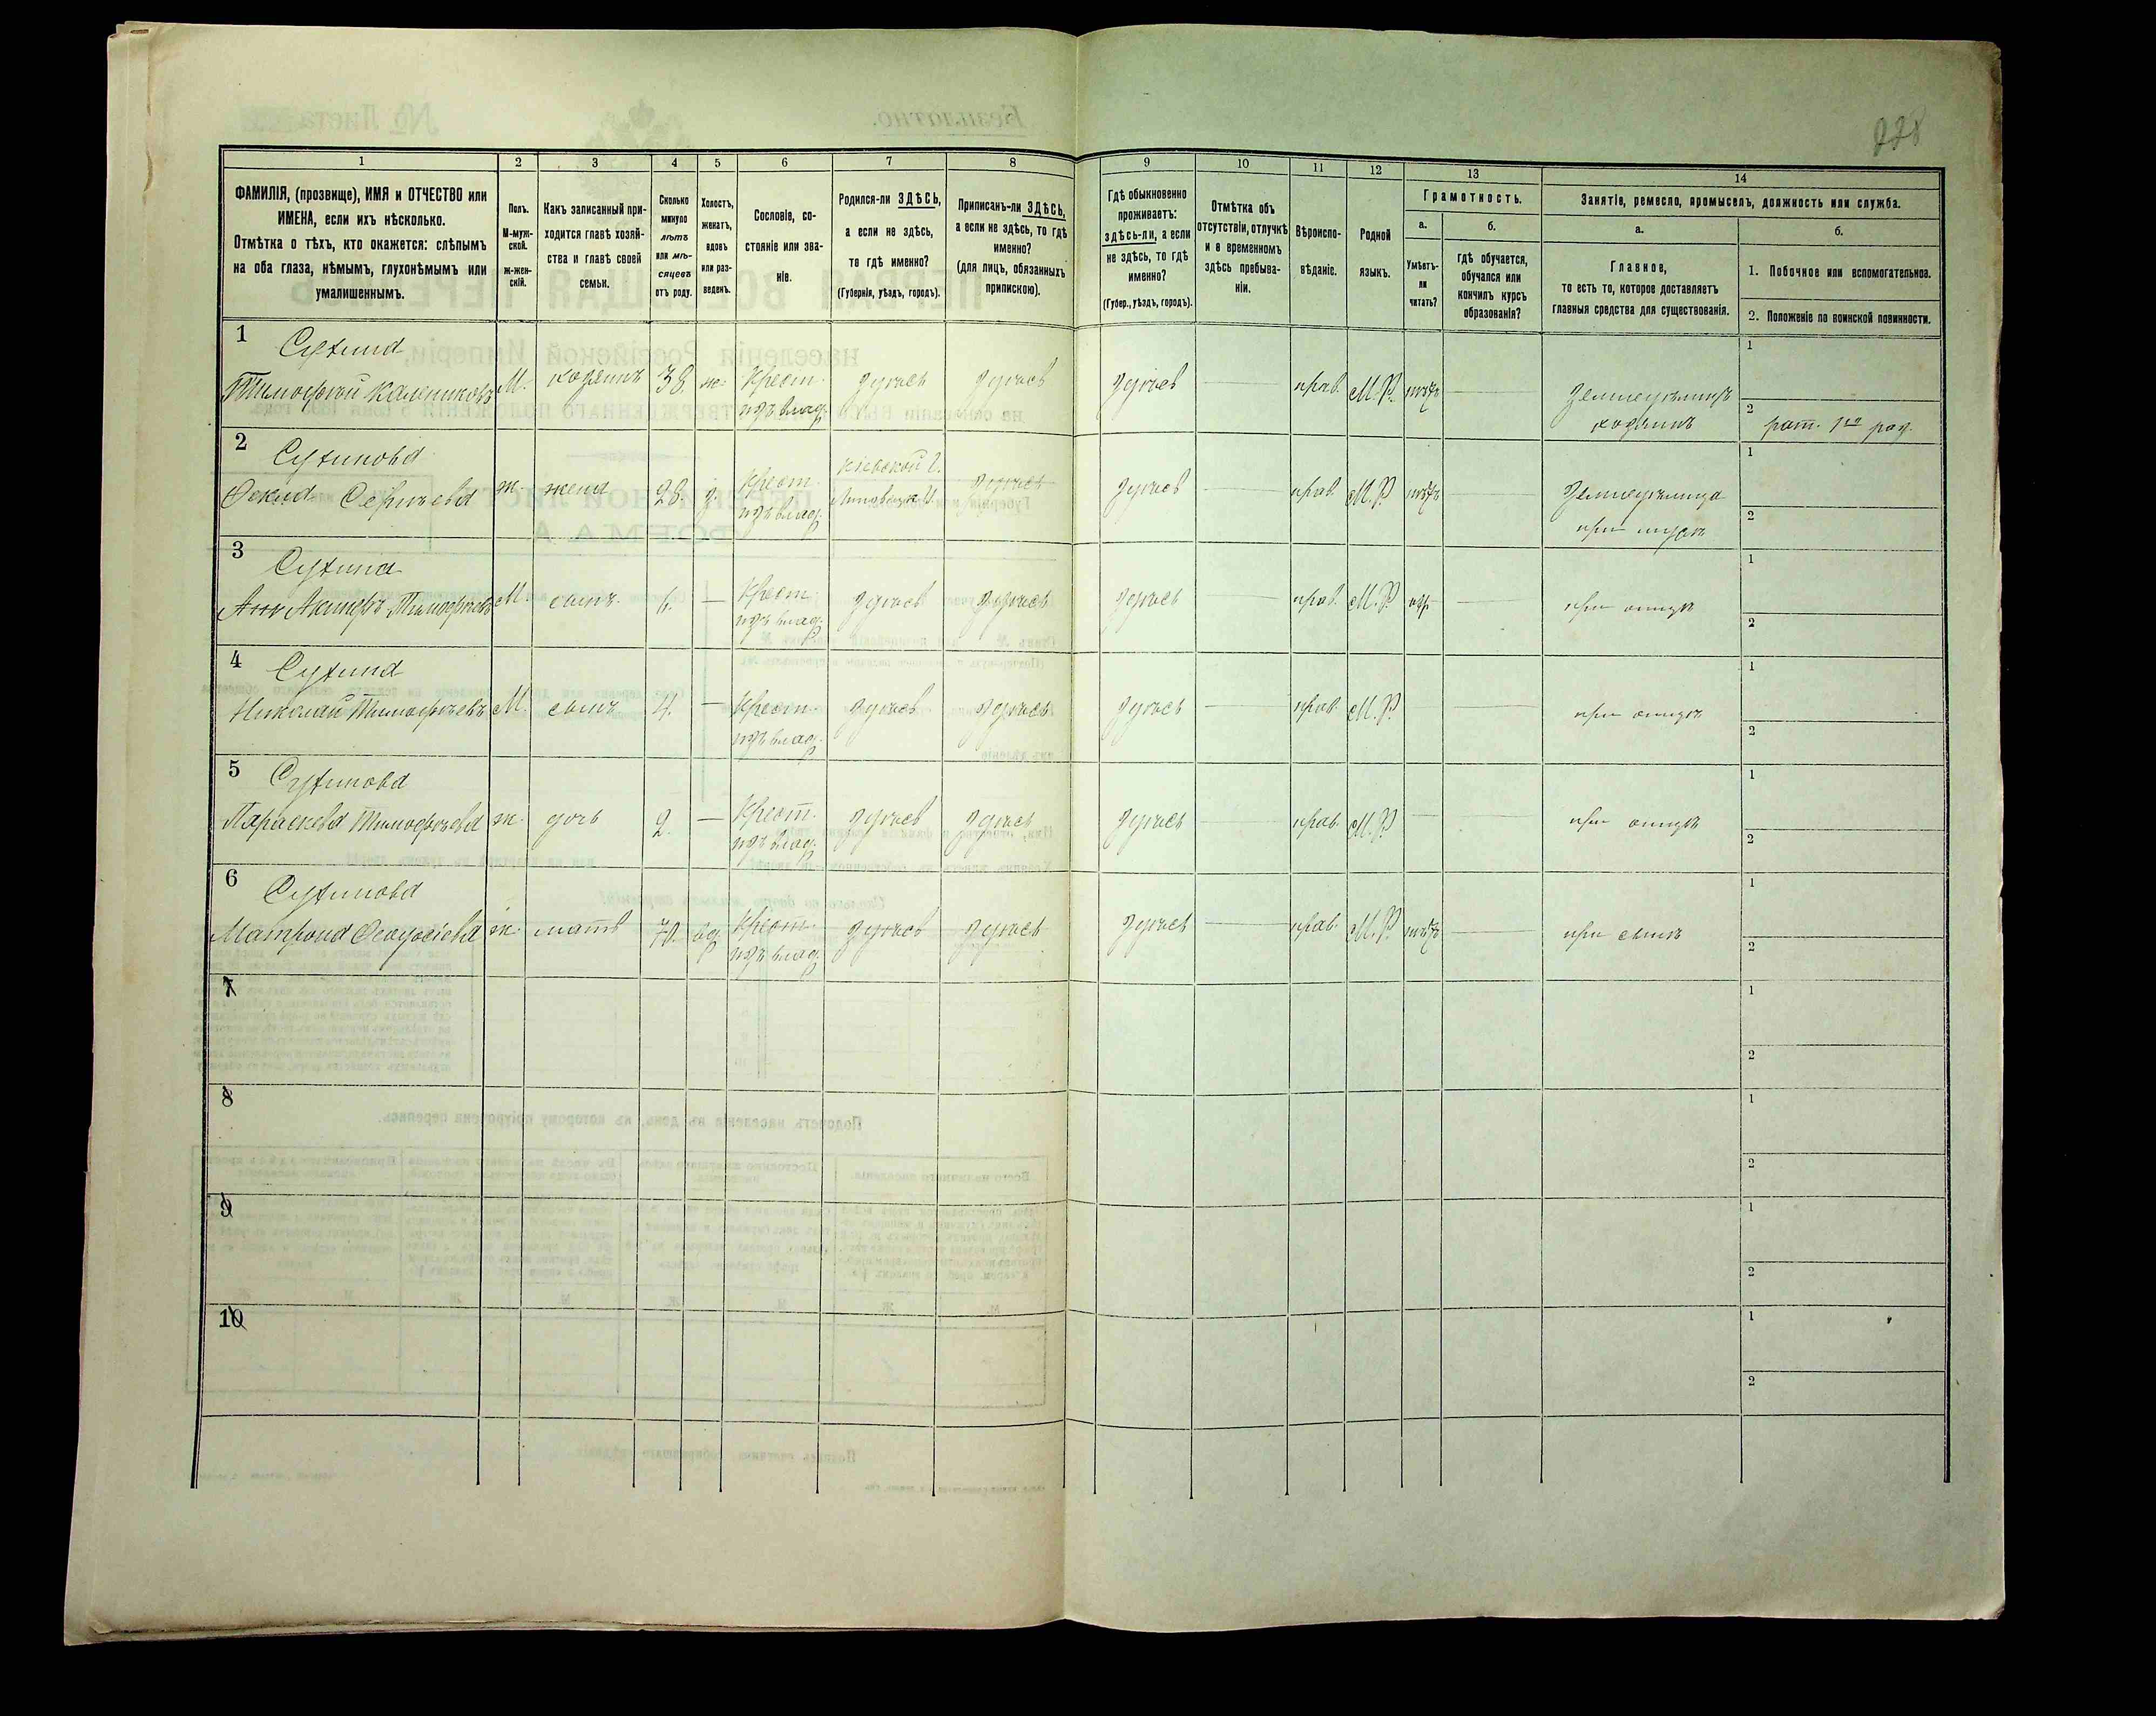 228
1
2
3
4
5
6
7
8
9
10
11
12
13
14
ФАМИЛІЯ, (прозвище), ИМЯ и ОТЧЕСТВО или
ИМЕНА, если ихъ нѣсколько.
Отмѣтка о тѣхъ, кто окажется: слѣпымъ
на оба глаза, нѣмымъ, глухонѣмымъ или
умалишеннымъ.
Полъ.
М-муж-
ской.
ж-жен-
скій.
Какъ записанный при-
ходится главѣ хозяй-
ства и главѣ своей
семьи.
Сколько
минуло
лѣтъ
или мѣ-
сяцевъ
отъ роду.
Холостъ,
женатъ,
вдовъ
или раз-
веденъ.
Сословіе, со-
стояніе или зва-
ніе.
Родился-ли ЗДѢСЬ,
а если не здѣсь,
то гдѣ именно?
(Губернія, уѣздъ, городъ).
Приписанъ-ли ЗДѢСЬ,
а если не здѣсь, то гдѣ
именно?
(для лицъ, обязанныхъ
припискою).
Гдѣ обыкновенно
проживаетъ:
здѣсь-ли, а если
не здѣсь, то гдѣ
именно?
(Губер., уѣздъ, городъ).
Отмѣтка объ
отсутствіи, отлучкѣ
и о временномъ
здѣсь пребыва-
ніи.
Вѣроиспо-
вѣданіе.
Родной
языкъ.
Грамотность.
а.
Умѣетъ-
ли
читать?
б.
гдѣ обучается,
обучался или
кончилъ курсъ
образованія?
Занятіе, ремесло, промыселъ, должность или служба.
а.
Главное,
то есть то, которое доставляетъ
главныя средства для существованія.
б.
1. Побочное или вспомогательное.
2. Положеніе по воинской повинности.
1
Сухина
Тимофей Калениковъ М. хозяинъ 38. ж. Крест. здѣсь здѣсь здѣсь — прав. М.Р. нѣтъ — Земледѣлецъ 1
изъ влад. хозяинъ 2 рат. 1го раз.
2
Сухинова Кіевской г. 1
Ж. жена 28. з. Крест. Липовецк. У. здѣсь здѣсь — прав. М.Р. нѣтъ — Земледѣлица
изъ влад. при мужѣ 2
3
Сухина 1
Тимофѣевъ М. сынъ. 6. — Крест. здѣсь здѣсь здѣсь — прав. М.Р. — при отцѣ
изъ влад. 2
4
Сухина 1
Николай Тимофѣевъ М. сынъ 4. — Крест. здѣсь здѣсь здѣсь — прав. М.Р. — при отцѣ
изъ влад. 2
5
Сухинова 1
Параскева Тимофѣева ж. дочь 2. — Крест. здѣсь здѣсь здѣсь — прав. М.Р. — — при отцѣ
изъ влад. 2
6
Сухинова 1
Матрона Феодосіева ж. мать 70. вд. Крест. здѣсь здѣсь здѣсь — прав. М.Р. нѣтъ — при сынѣ
изъ влад. 2
7 1
2
8 1
2
9 1
2
10 1
2